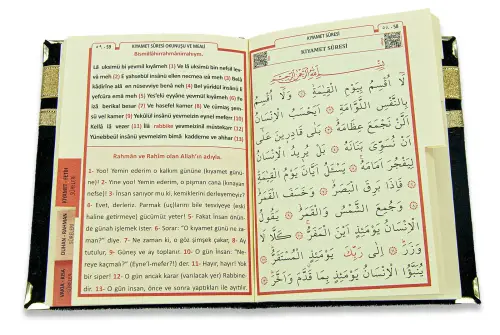 KIYAMET SÛRESİ OKUNUŞU ve MEALİ
Bismillâhirrahmânirrahıym.
Lâ uksimü bi yevmil kıyâmeh (1) Ve lâ uksimü bin nefsil lev-
vâ meh (2) E yahsebül insânü ellen necmea ızâ meh (3) Belâ
kâdirîne alâ en nüsevviye benâ neh (4) Bel yürîdül insânü li
yefcüra emâ meh (5) Yes'elü eyyâne yevmül kıyâmeh (6) Fe
izâ berikal besar (7) Ve hasefel kamer (8) Ve cümiaş şem-
sü vel kamer (9) Yekûlül insânü yevmeizin eynel mefer (10)
Kellâ lâ vezer (11) İlâ rabbike yevmeizinil müstekarr (12)
Yünebbeül insânü yevmeizim bimâ kaddeme ve ahhar (13)
Rahmân ve Rahîm olan Allah'ın adıyla.
1- Yoo! Yemin ederim o kalkım gününe (kıyamet günü-
ne)! 2- Yine yoo! Yemin ederim, o pişman cana (kınayan
nefse)! 3- İnsan sanıyor mu ki, kemiklerini derleyemeyiz?
4- Evet, derleriz. Parmak (uç)larını bile tesviyeye (eski
haline getirmeye) gücümüz yeter! 5- Fakat İnsan önün-
de günah işlemek ister 6- Sorar: "O kıyamet günü ne za-
man?" diye. 7- Ne zaman ki, o göz şimşek çakar, 8- Ay
tutulur, 9- Güneş ve ay toplanır. 10- O gün İnsan: "Ne-
reye kaçmalı?" (Eyne'l-mefer?!) der. 11- Hayır, hayır! Yok
bir siper! 12- O gün ancak karar (varılacak yer) Rabbine-
dir. 13- O gün insan, önce ve sonra yaptıkları ile ayıltılır.
KIYAMET - FETİH
SÛRELERİ
DUHAN - RAHMAN
SÛRELERİ
VAKIA - KISA
KIYAMET SÛRESİ
KIYAMET SÛRESİ
بِسْمِ اللّٰهِ الرَّحْمٰنِ الرَّحِيمِ
لَا أُقْسِمُ بِيَوْمِ الْقِيٰمَةِ وَلَا أُقْسِمُ
بِالنَّفْسِ اللَّوَّامَةِ أَيَحْسَبُ الْإِنْسَانُ
أَلَّنْ نَجْمَعَ عِظَامَهُ بَلٰى قَادِرِينَ عَلٰى
أَنْ نُسَوِّيَ بَنَانَهُ بَلْ يُرِيدُ الْإِنْسَانُ
لِيَفْجُرَ أَمَامَهُ يَسْئَلُ أَيَّانَ يَوْمُ الْقِيٰمَةِ
فَإِذَا بَرِقَ الْبَصَرُ وَخَسَفَ الْقَمَرُ
وَجُمِعَ الشَّمْسُ وَالْقَمَرُ يَقُولُ
الْإِنْسَانُ يَوْمَئِذٍ أَيْنَ الْمَفَرُّ كَلَّا لَا
وَزَرَ إِلٰى رَبِّكَ يَوْمَئِذٍ الْمُسْتَقَرُّ
يُنَبَّؤُا الْإِنْسَانُ يَوْمَئِذٍ بِمَا قَدَّمَ وَأَخَّرَ